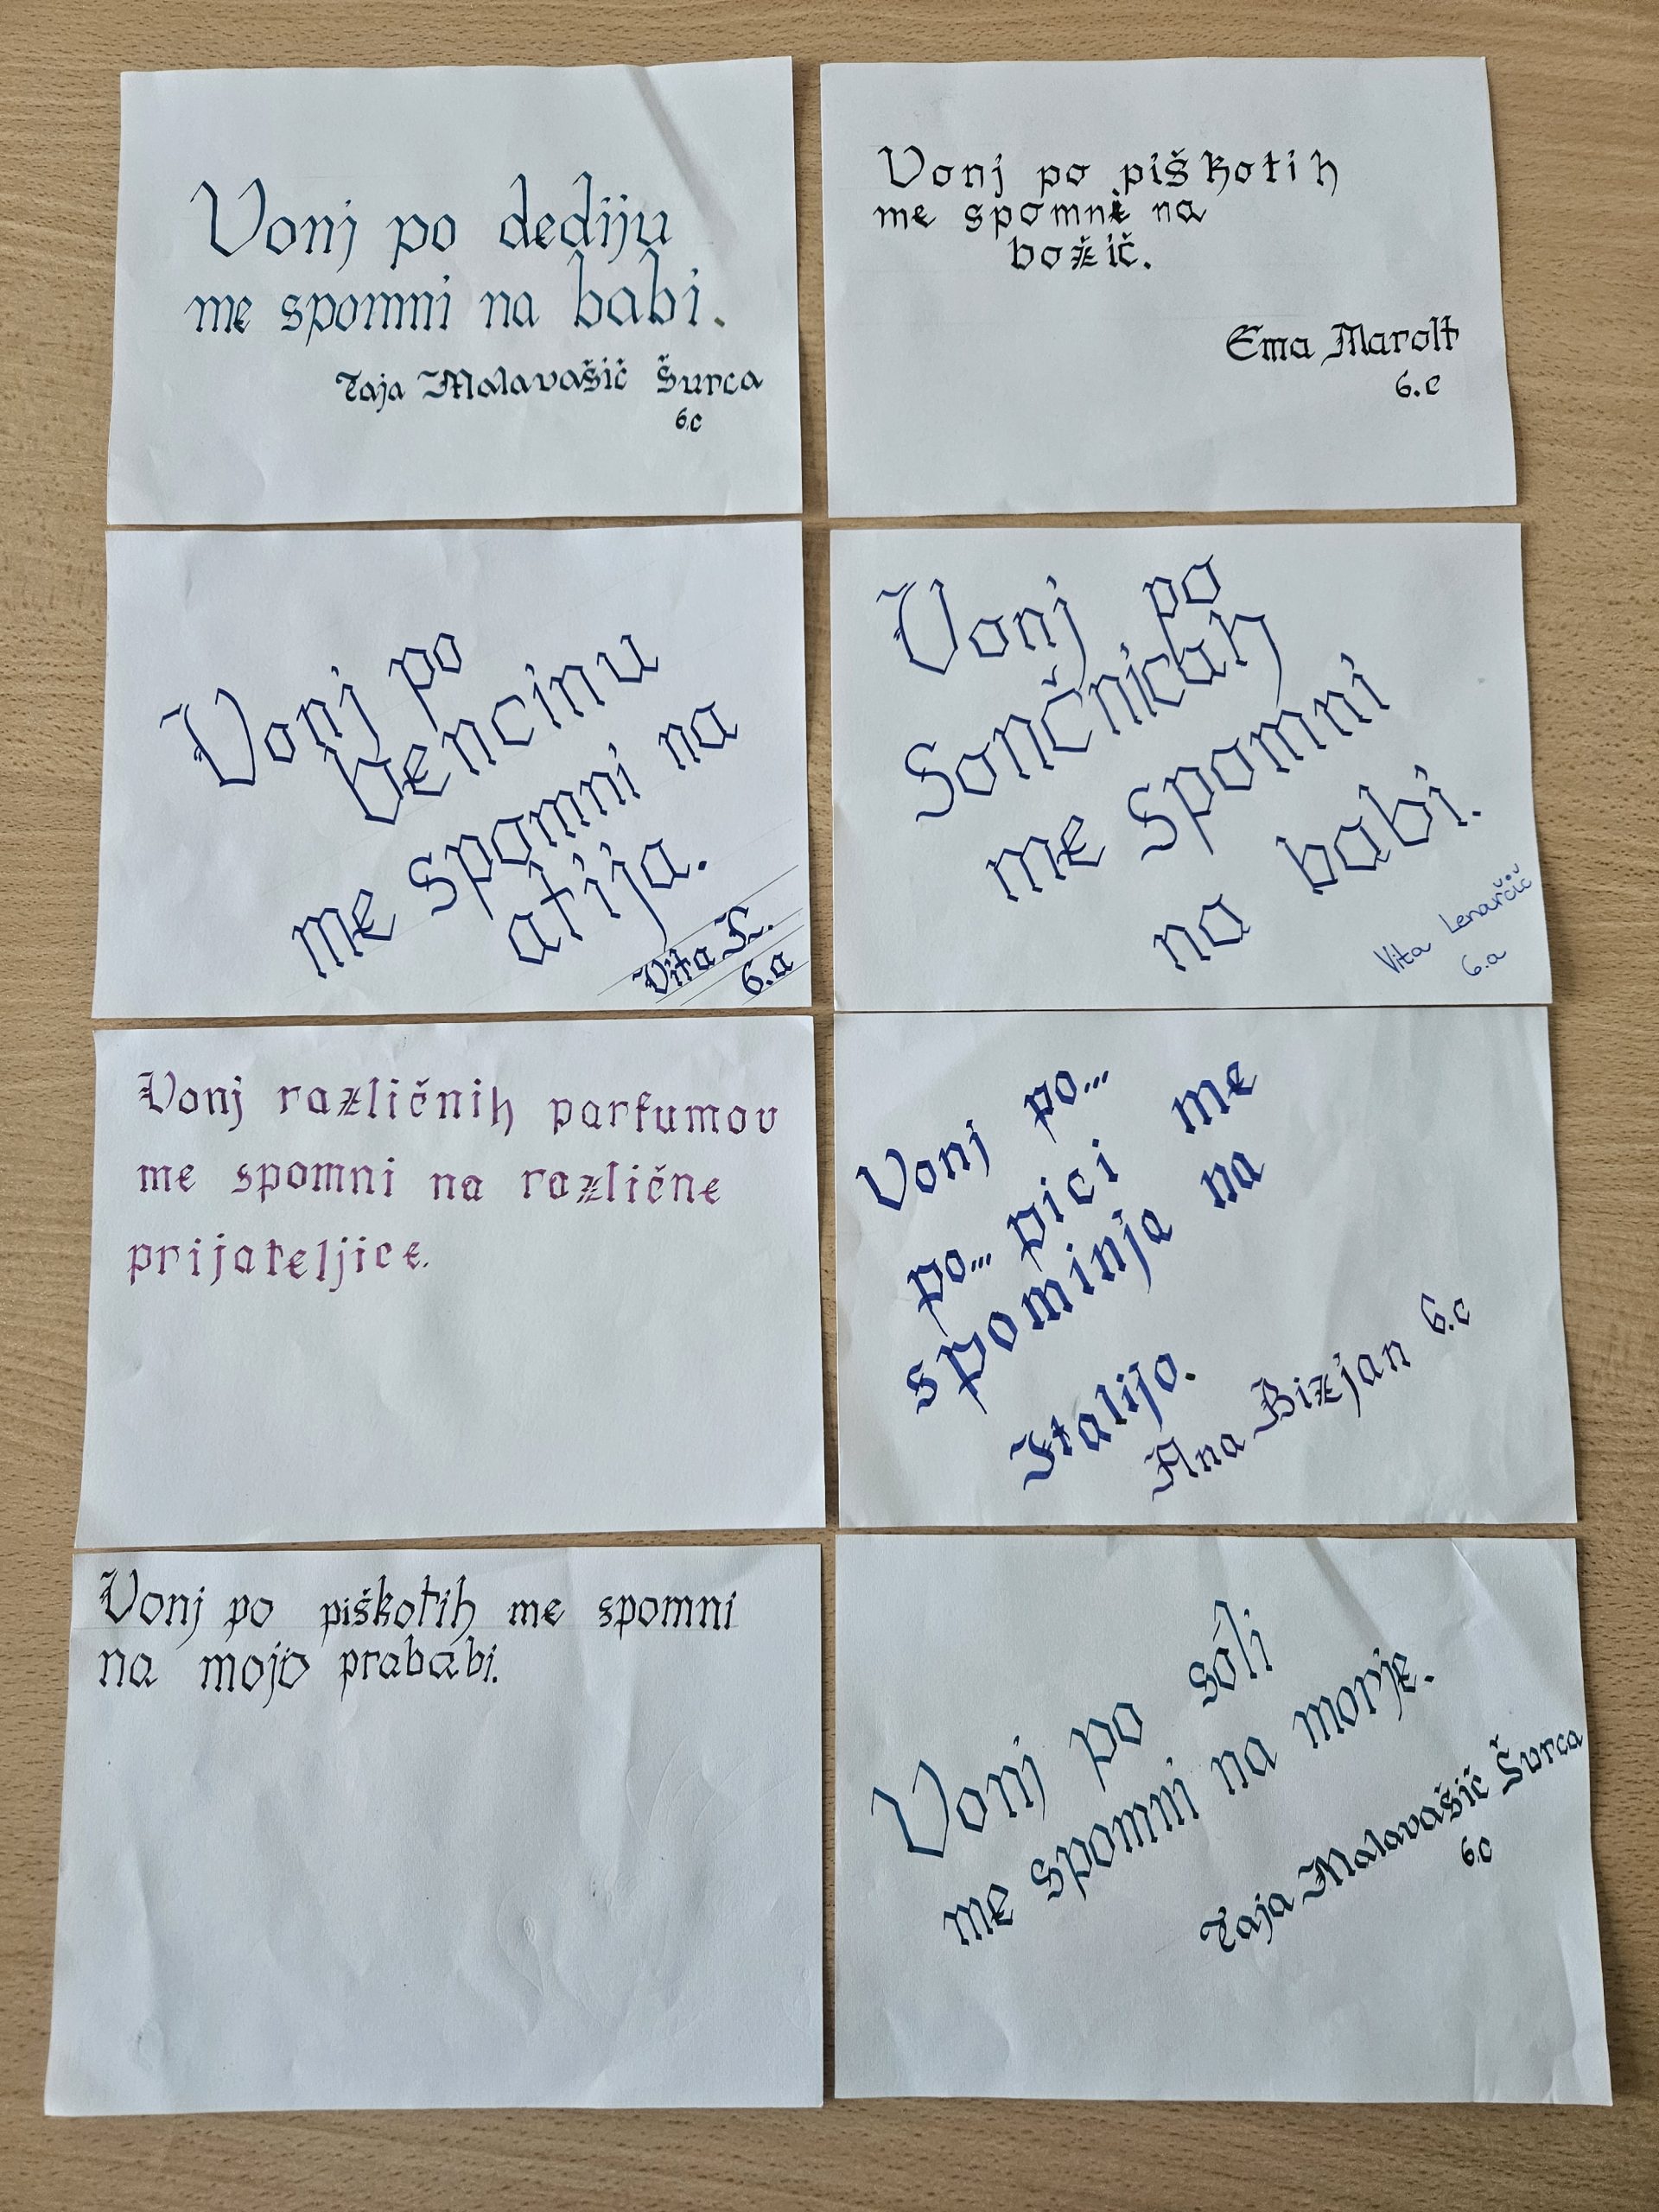 Vonj po dediju
me spomni na babi.
Taja Malavašič Šurca
6.c
Vonj po piškotih
me spomni na
božič.
Ema Marolt
6.c
Vonj po
bencinu
me spomni na
atija.
Vita L.
6.a
Vonj po
Sončnicah
me spomni
na babi.
Vita Lenarčič
6.a
Vonj različnih parfumov
me spomni na različne
prijateljice.
Vonj po...
po... pici me
spominja na
Italijo.
Ana Bizjan 6.c
Vonj po piškotih me spomni
na mojo prababi.
Vonj po soli
me spomni na morje.
Taja Malavašič Šurca
6.c